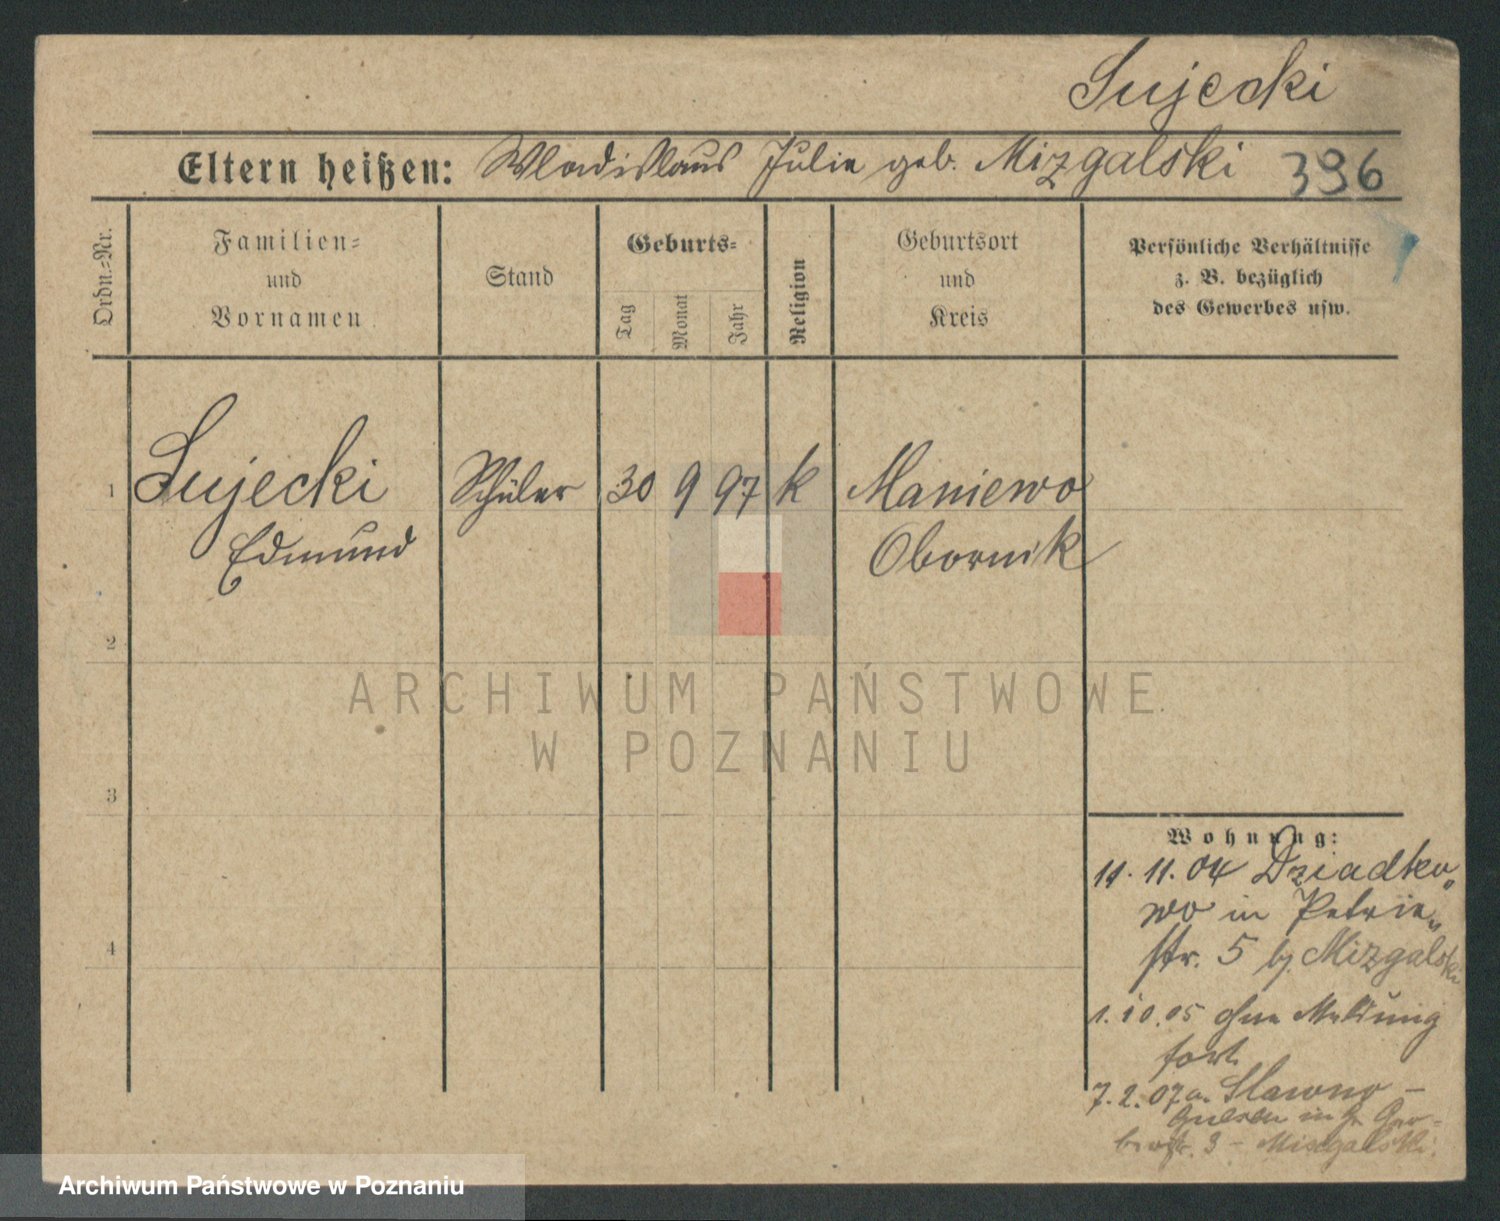 Sujecki
Eltern heißen: Wladislaus Julie geb. Mizgalski 396
Ordn.=Nr.
Familien=
und
Vornamen
Stand
Geburts=
Tag
Monat
Jahr
Religion
Geburtsort
und
Kreis
Persönliche Verhältnisse
z. B. bezüglich
des Gewerbes usw.
1 Sujecki Schüler 30 9 97 k Maniewo
Edmund Obornik
2
3
4
Wohnung:
11. 11. 04 Dziadko„
wo in Petrie„
str. 5 bj. Mizgalski
1. 10. 05 ohne Meldung
fort
7. 2. 07 a. Slawno –
Gnesen in Gr. Ger=
str. 3 – Misgalski.
ARCHIWUM PAŃSTWOWE
W POZNANIU
Archiwum Państwowe w Poznaniu